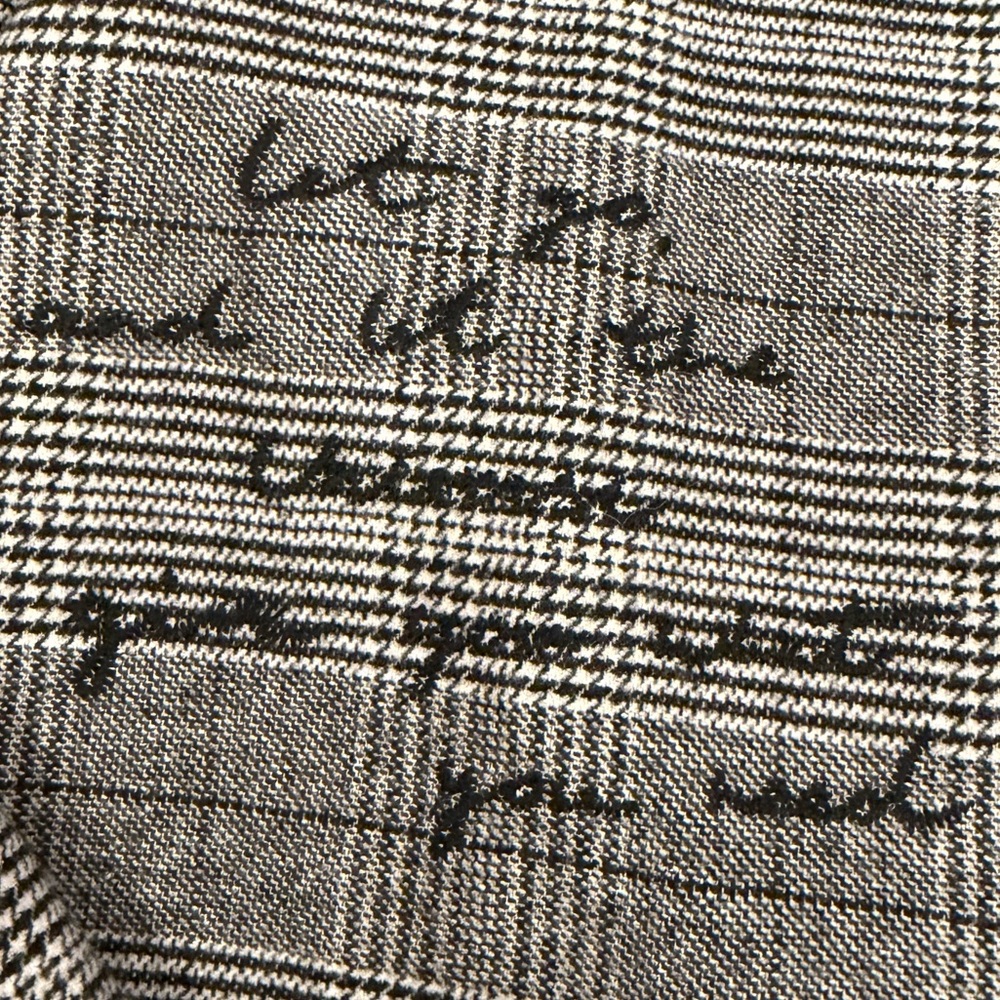 let go,
and let the
Universe
give you what
you need